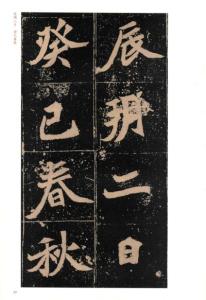 辰朔二日
癸巳春秋